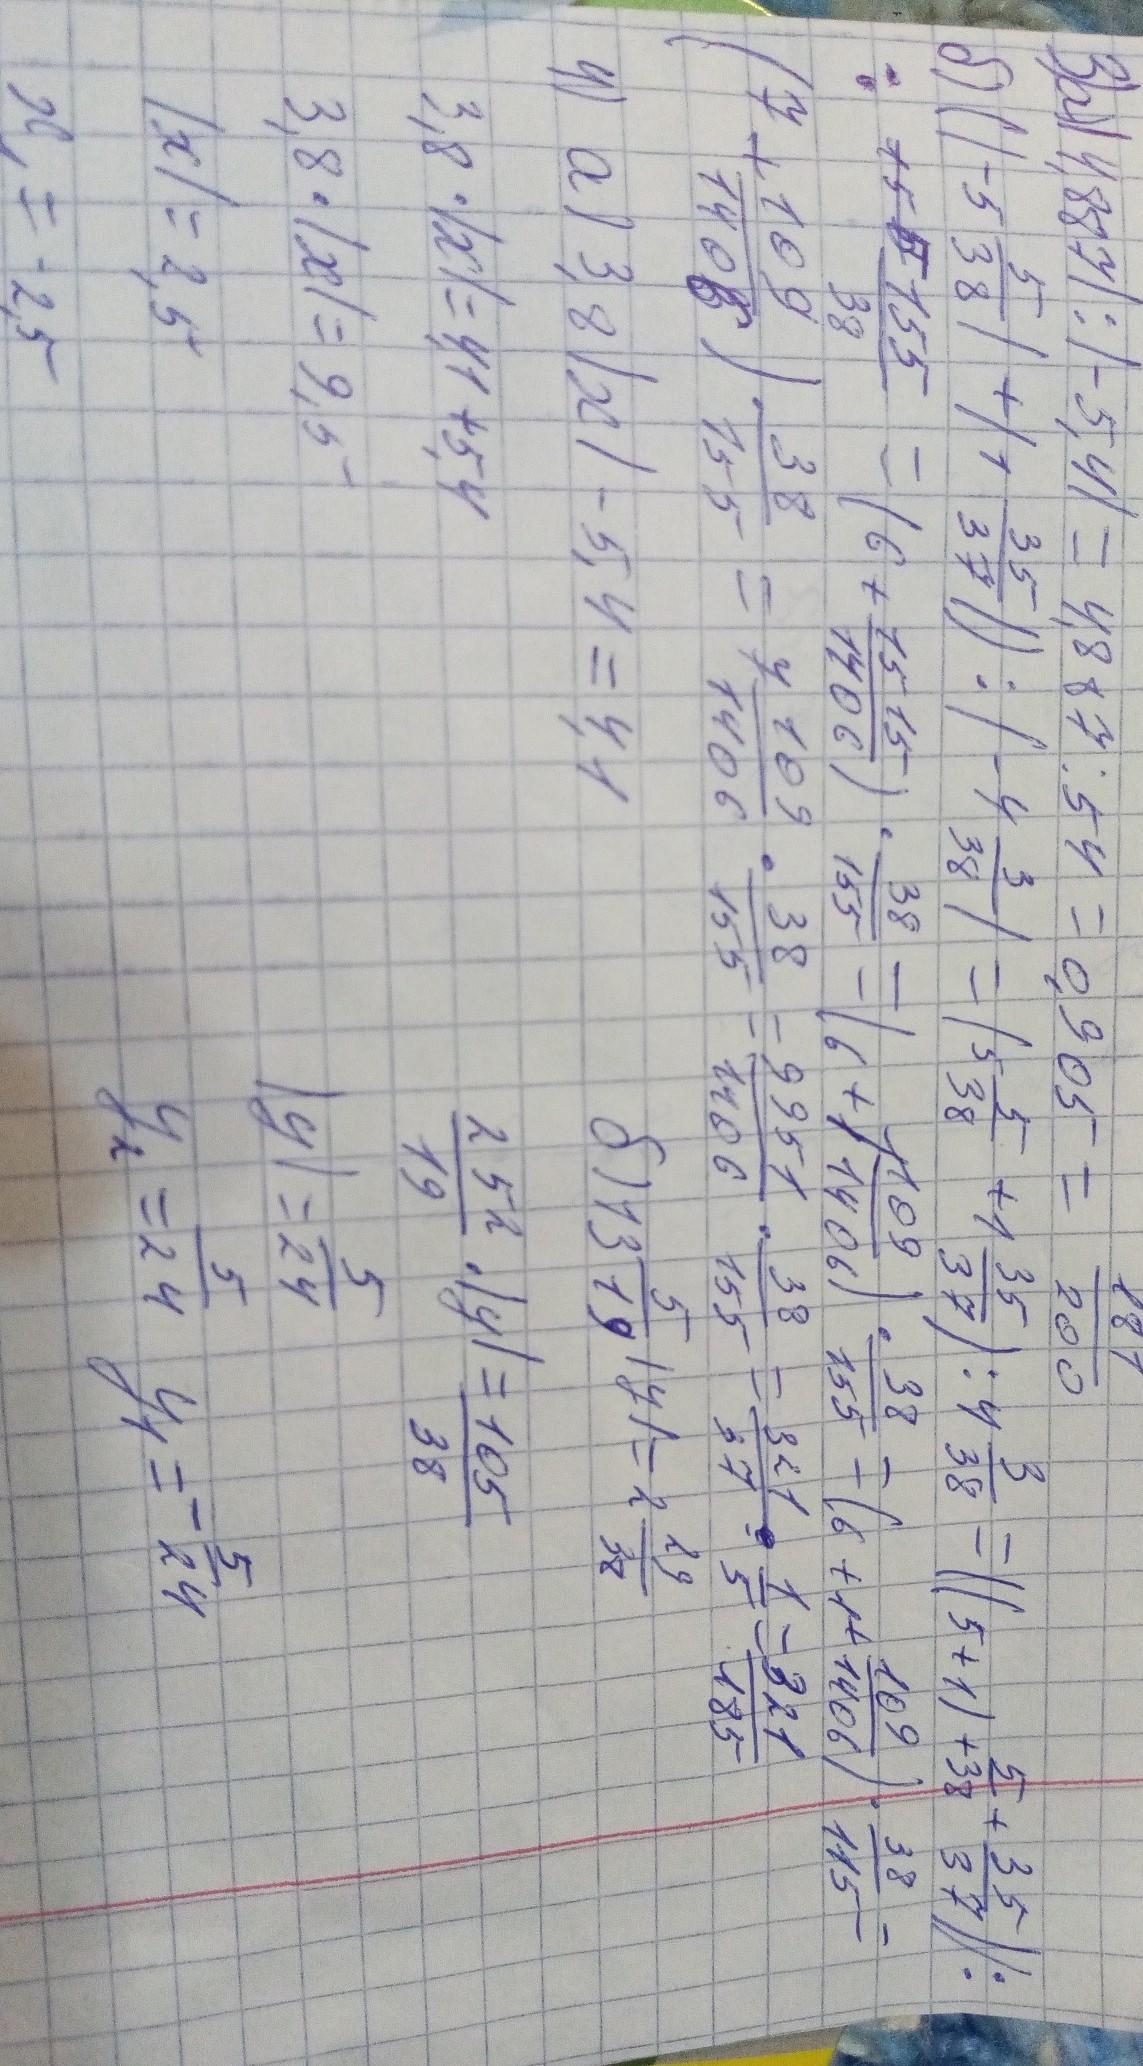 3) а) |4,887| : |-5,4| = 4,887 : 5,4 = 0,905 = 181/200
б) (|-5 5/38| + |1 35/37|) : |-4 3/38| = (5 5/38 + 1 35/37) : 4 3/38 = ((5+1) + (5/38 + 35/37)) :
: 155/38 = (6 + 1515/1406) · 38/155 = (6 + 1 109/1406) · 38/155 = (6 + 1 + 109/1406) · 38/115 =
(7 + 109/1406) · 38/155 = 7 109/1406 · 38/155 = 9951/1406 · 38/155 = 321/37 · 1/5 = 321/185
4) а) 3,8 |x| - 5,4 = 4,1
3,8 · |x| = 4,1 + 5,4
3,8 · |x| = 9,5
|x| = 2,5
x₁ = -2,5
б) 13 5/19 |y| = 2 29/38
252/19 · |y| = 105/38
|y| = 5/24
y₂ = 5/24 y₁ = -5/24